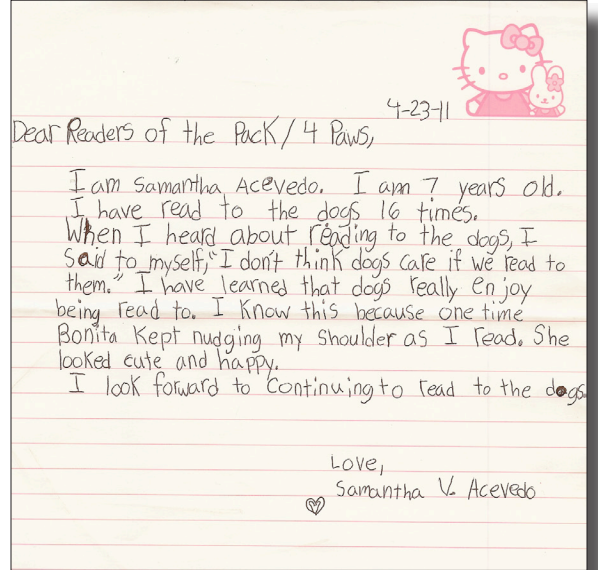 4-23-11
Dear Readers of the Pack/4 Paws,
I am Samantha Acevedo. I am 7 years old.
I have read to the dogs 16 times.
When I heard about reading to the dogs, I
said to myself, "I don't think dogs care if we read to
them." I have learned that dogs really enjoy
being read to. I know this because one time
Bonita kept nudging my shoulder as I read. She
looked cute and happy.
I look forward to continuing to read to the dogs.
Love,
Samantha V. Acevedo